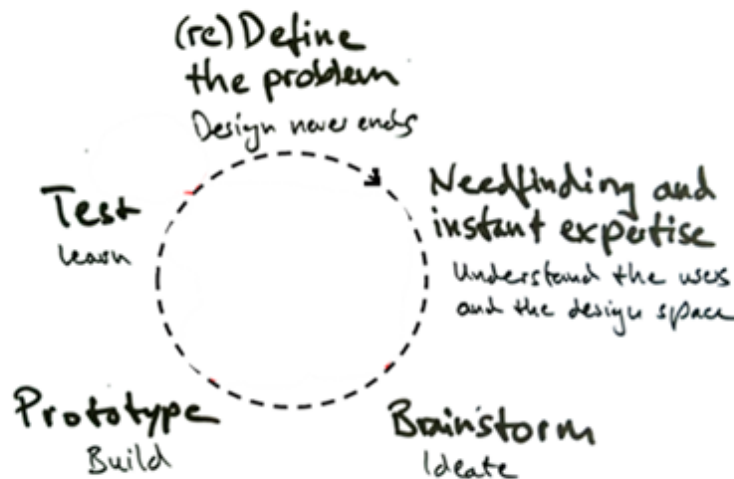 (re)Define
the problem
Design never ends
Needfinding and
instant expertise
Understand the users
and the design space
Brainstorm
Ideate
Prototype
Build
Test
Learn